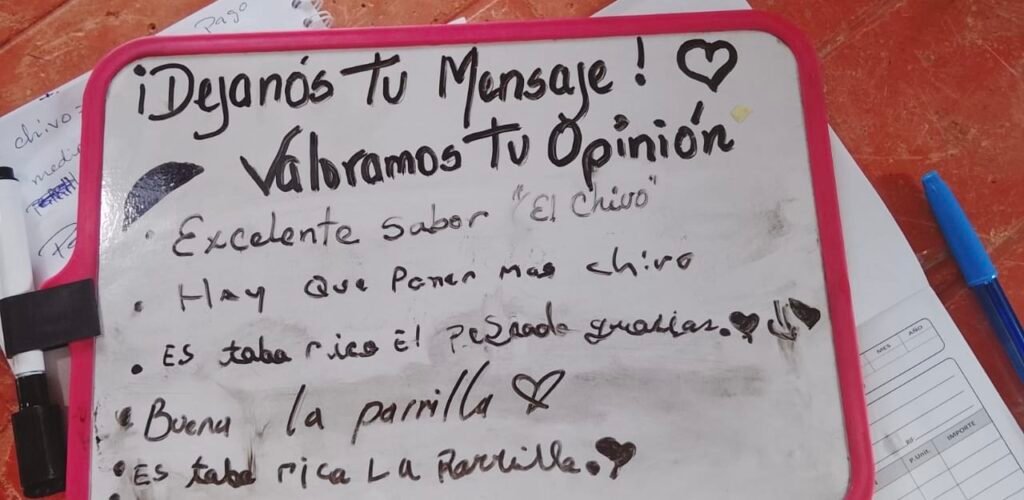 pago
chivo =
medie
¡Dejanós Tu Mensaje!
Valoramos Tu Opinión
• Excelente sabor "El chivo"
• Hay que poner mas chivo
• Es taba rico El Pescado grasias.
• Buena la parrilla
• Es taba rica La Parrilla.
MES AÑO
P.Unit. IMPORTE